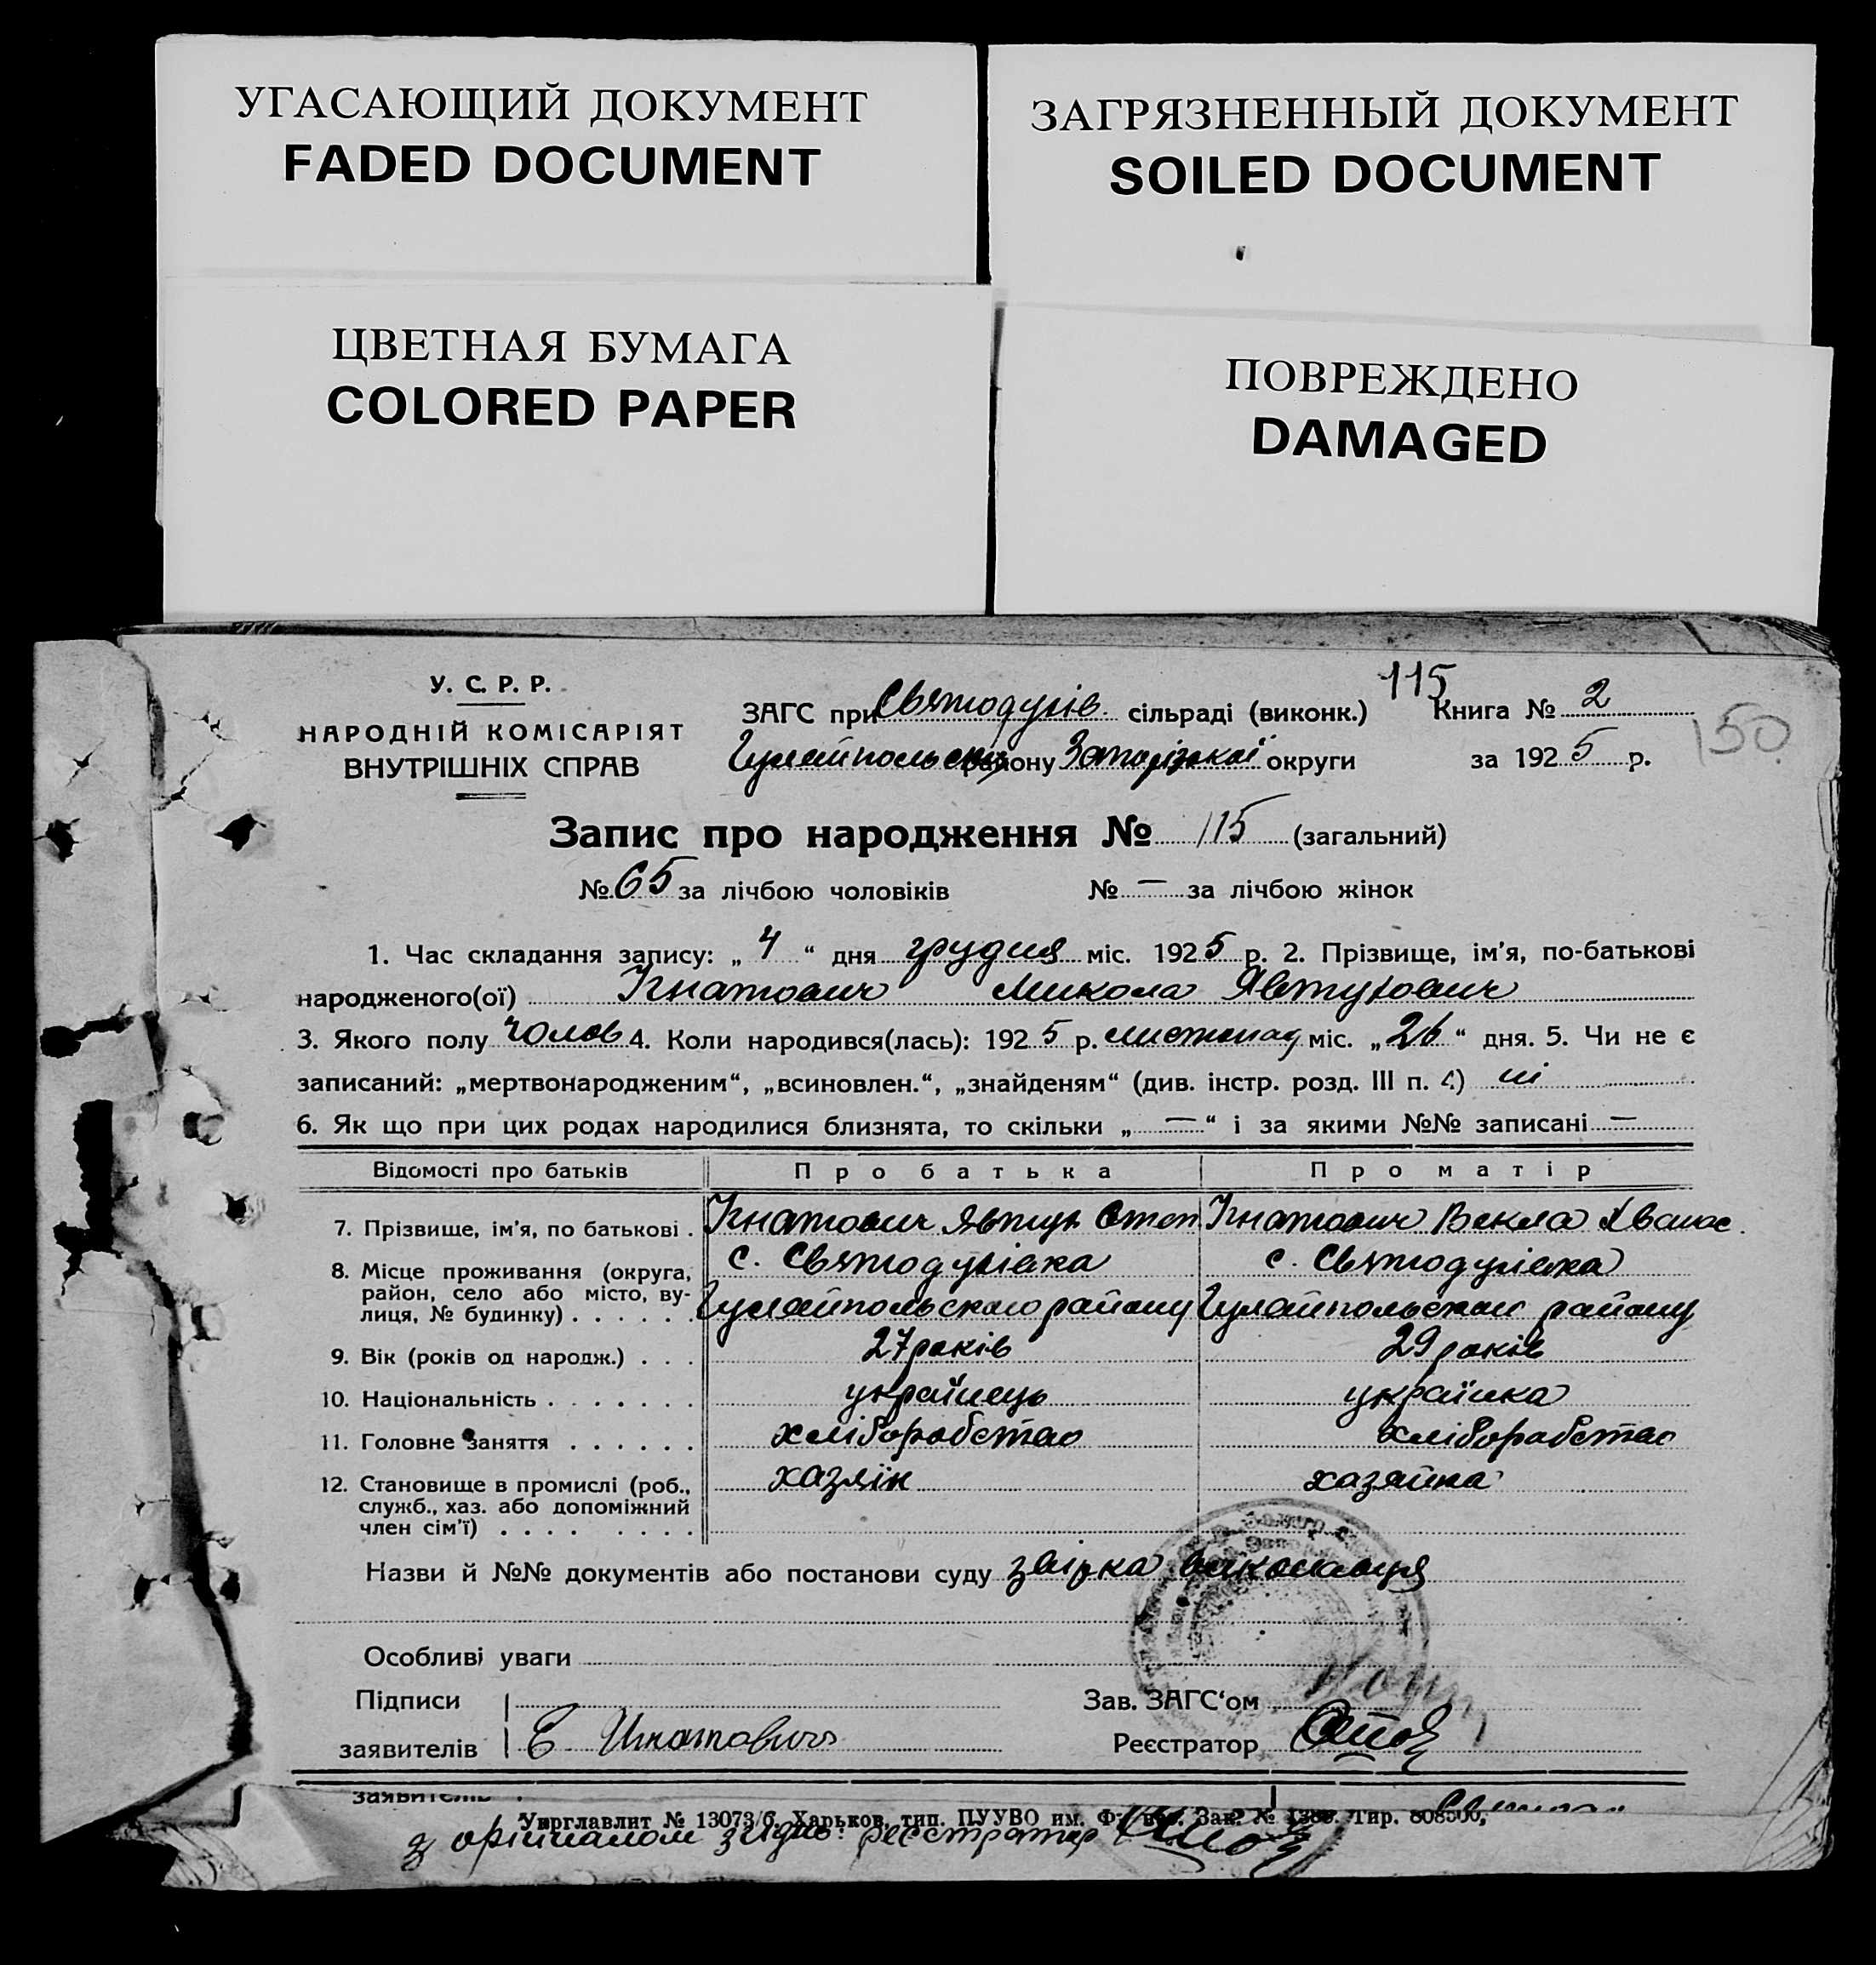 УГАСАЮЩИЙ ДОКУМЕНТ
FADED DOCUMENT
ЗАГРЯЗНЕННЫЙ ДОКУМЕНТ
SOILED DOCUMENT
ЦВЕТНАЯ БУМАГА
COLORED PAPER
ПОВРЕЖДЕНО
DAMAGED
У. С. Р. Р.
НАРОДНІЙ КОМІСАРІЯТ
ВНУТРІШНІХ СПРАВ
115
ЗАГС при Святодухів. сільраді (виконк.) Книга № 2
150
Гуляйпольськ району Запорізької округи за 1925 р.
Запис про народження № 115 (загальний)
№ 65 за лічбою чоловіків № — за лічбою жінок
1. Час складання запису: „ 4 “ дня грудня міс. 1925 р. 2. Прізвище, ім'я, по-батькові
народженого(ої) Игнатович Микола Явтухович
3. Якого полу чолов 4. Коли народився(лась): 1925 р. листопад міс. „26“ дня. 5. Чи не є
записаний: „мертвонародженим“, „всиновлен.“, „знайденям“ (див. інстр. розд. III п. 4) ні
6. Як що при цих родах народилися близнята, то скільки „ — “ і за якими №№ записані —
Відомості про батьків Про батька Про матір
7. Прізвище, ім'я, по батькові . Игнатович Явтух Степ Игнатович Векла
8. Місце проживання (округа, район, село або місто, вулиця, № будинку) . . . . . . с. Святодухівка Гуляйпольского району с. Святодухівка Гуляйпольского району
9. Вік (років од народж.) . . . 27 років 29 років
10. Національність . . . . . . . українець українка
11. Головне заняття . . . . . . хліборобство хліборобство
12. Становище в промислі (роб., служб., хаз. або допоміжний член сім'ї) . . . . . . . . хазяїн хазяйка
Назви й №№ документів або постанови суду звірка виконавця
Особливі уваги
Підписи Зав. ЗАГС‘ом
заявителів Е Игнатович Реєстратор
заявителів
Укрглавлит № 13073/б. Харьков, тип. ПУУВО им. Фр Зак. № 1388. Тир. 808500,
з орігіналом згідно: реєстратор